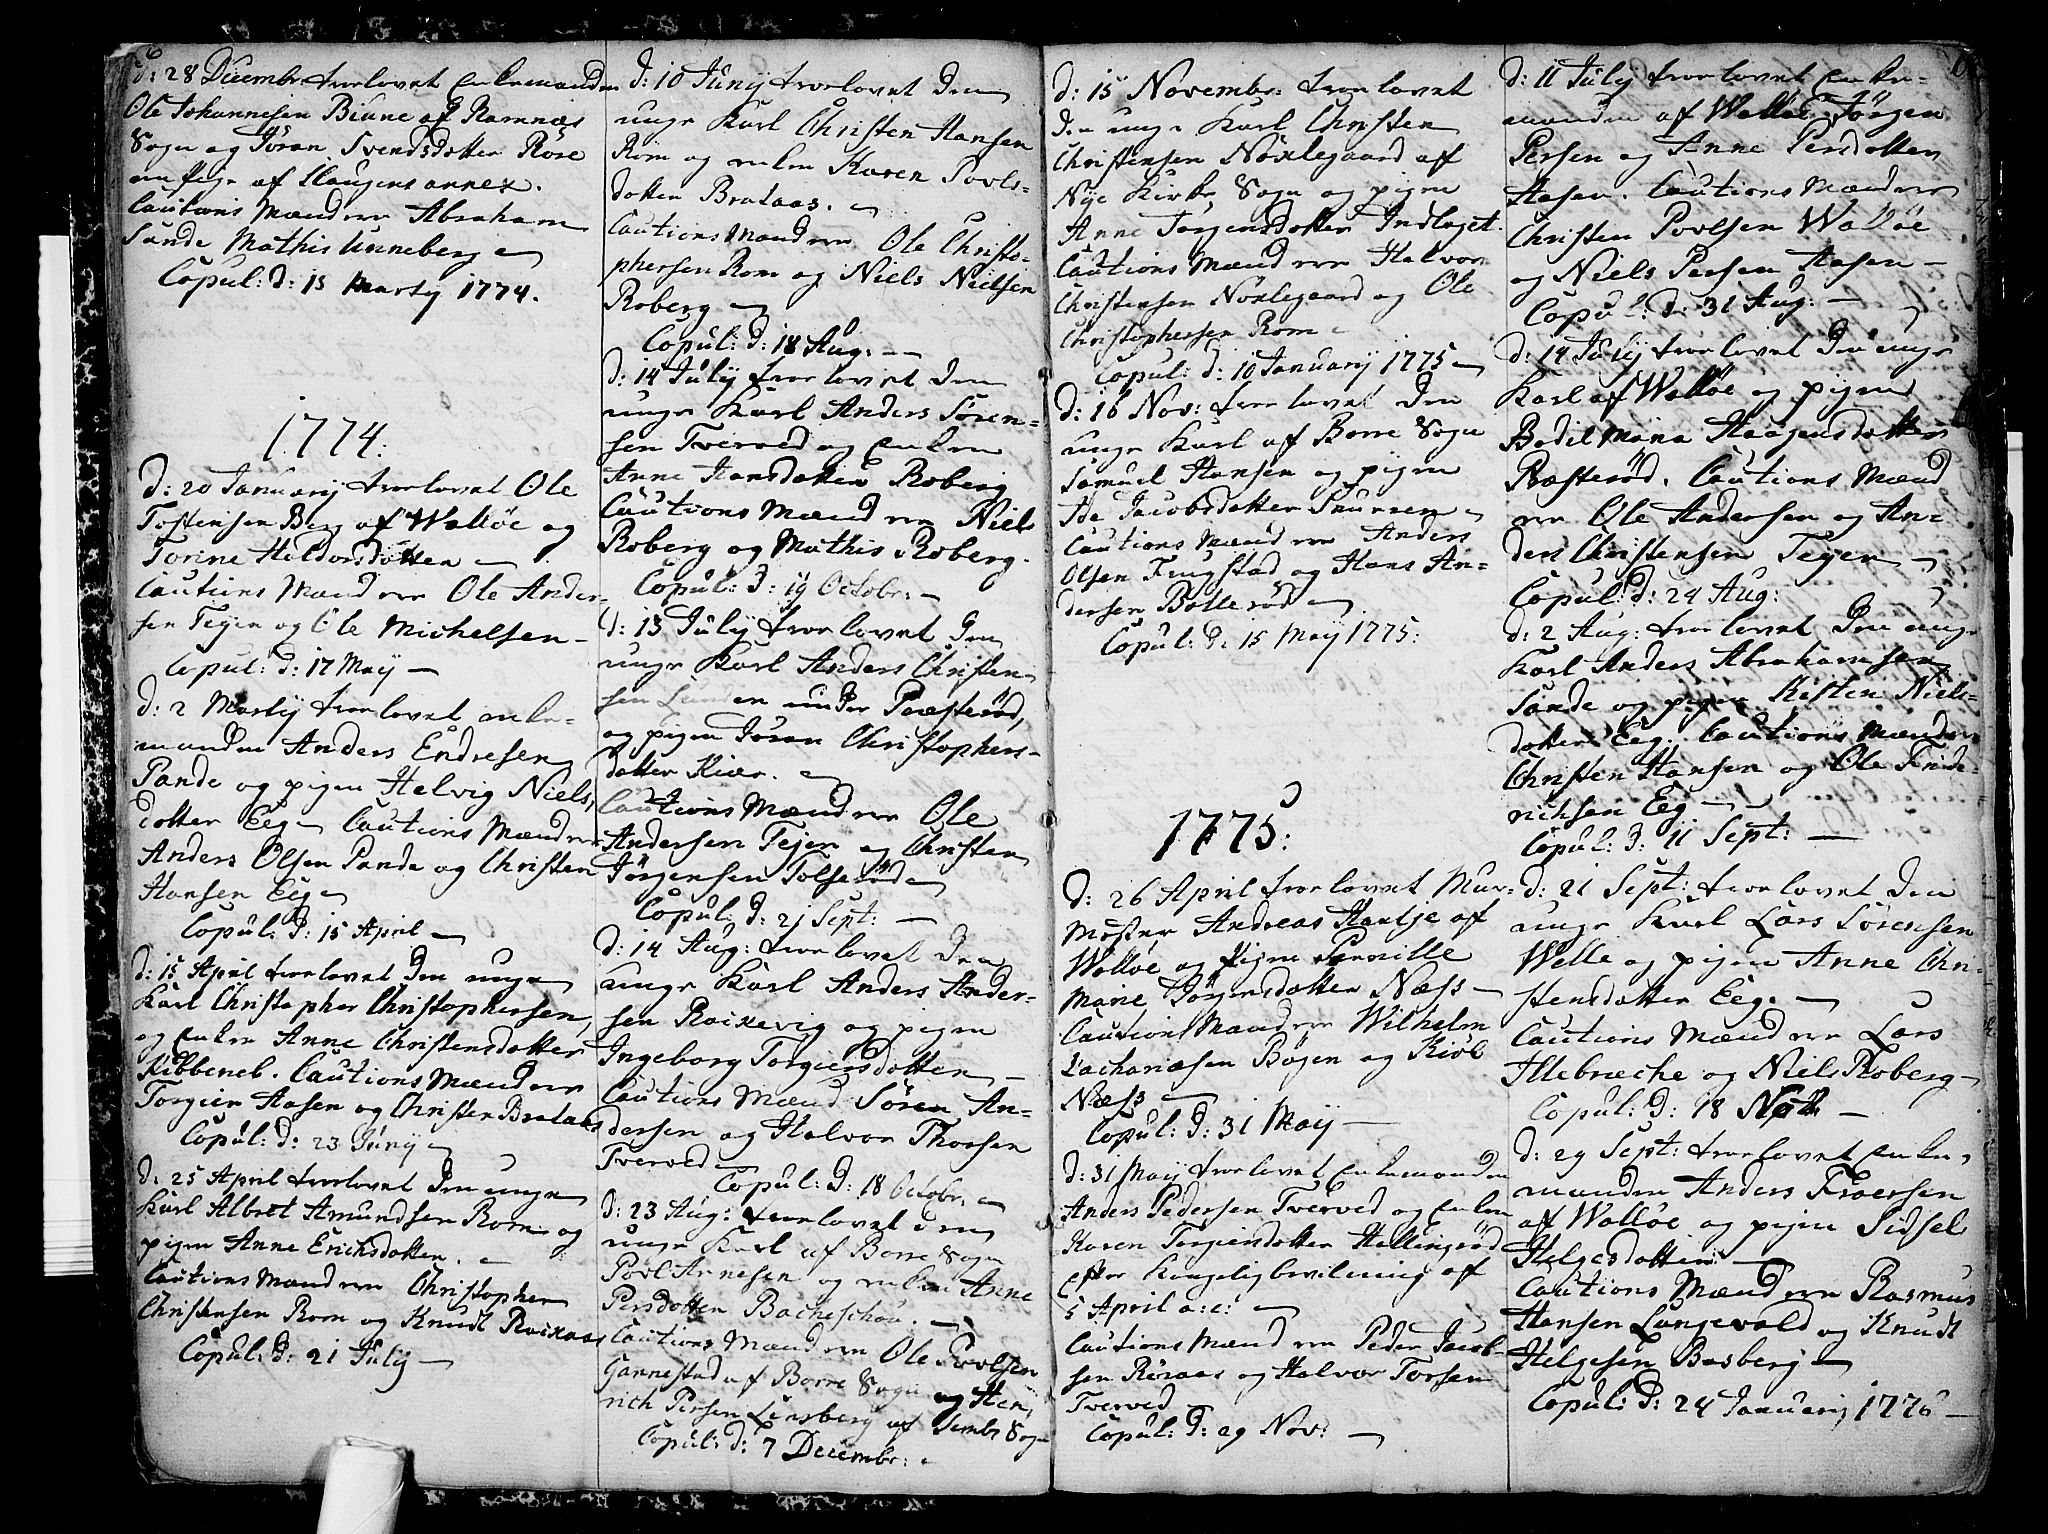 6
d: 28 Decembr trorlovet Enkemanden
Ole Johannesen Biune af Ramnæs
Sogn og Jöran Svendsdotter Röre
en pige af Slaugens annex.
Cautions Mænd ere Abraham
Sande Mathis Unneberg
Copul: d: 15 Martij 1774.
1774.
d: 20 Januarij trorlovet Ole
Tostensen Berg af Walløe og
Torine Heldorsdotter
Cautions Mænd ere Ole Ander-
sen Tejen og Ole Michelsen
Copul: d: 17 Maij
d: 2 Martij trorlovet enke-
manden Anders Endresen
Pande og pigen Helvig Niels
dotter Eeg Cautions Mænd ere
Anders Olsen Pande og Christen
Hansen Eeg
Copul: d: 15 April
d: 15 April trorlovet den unge
Karl Christopher Christophersen
og Enken Anne Christensdotter
Kibbenel. Cautions Mænd ere
Torgier Aasen og Christen Brataas
Copul: d: 23 Junij
d: 25 April trorlovet den unge
Karl Albret Amundsen Rom og
pigen Anne Erichsdotter.
Cautions Mænd ere Christopher
Christensen Rom og Knudt Raixaas
Copul: d: 21 Julij
d: 10 Junij trorlovet den
unge Karl Christen Hansen
Rom og enken Karen Povls-
dotter Brataas.
Cautions Mænd ere Ole Christo-
phersen Rom og Niels Nielsen
Roberg
Copul: d: 18 Aug:
d: 14 Julij trorlovet den
unge Karl Anders Sören-
sen Tverved og Enken
Anne Hansdotter Roberg
Cautions Mænd ere Niels
Roberg og Mathis Roberg.
Copul: d: 19 Octobr:
d: 13 Julij trorlovet den
unge Karl Anders Christen-
sen Lunden under Præsteröd,
og pigen Jöran Christophers-
dotter Kiær.
Cautions Mænd ere Ole
Andersen Tejen og Christen
Jörgensen Tolseröd
Copul: d: 21 Sept:
d: 14 Aug: trorlovet den
unge Karl Anders Ander-
sen Raixevig og pigen
Ingeborg Torgiersdotter
Cautions Mænd Sören An-
dersen og Halvor Thorsen
Tverved
Copul: d: 18 Octobr:
d: 23 Aug: trorlovet den
unge Karl af Borre Sogn
Povl Arnesen og enken Anne
Persdotter Bacheschou.
Cautions Mænd ere Ole Povlsen
Gannestad af Borre Sogn og Hen
rich Persen Linsberg af Sembs Sogn
Copul: d: 7 Decembr:
d: 15 Novembr: trorlovet
den unge Karl Christen
Christensen Noxlegaard aff
Nÿe Kirke Sogn og pigen
Anne Törgensdotter Indlaget.
Cautions Mænd ere Halvor
Christensen Noxlegaard og Ole
Christophersen Rom
Copul: d: 10 Januarij 1775
d: 16 Nov: trorlovet den
unge Karl af Borre Sogn
Samuel Hansen og pigen
Ide Jacobsdotter Snursen
Cautions Mænd ere Anders
Olsen Frugstad og Hans An-
dersen Bolleröd
Copul: d: 15 Maij 1775:
1775:
d: 26 April trorlovet Mur-
Mester Andreas Hantje aff
Walløe og Pigen Pernille
Marie Jörgensdotter Næss
Cautions Mænd ere Wilhelm
Zachariæsen Bögen og Kiöl
Næss
Copul: d: 31 Maij
d: 31 Maij trorlovet Enkemanden
Anders Pedersen Tverved og Enken
Karen Torgiersdotter Hellingröd
efter Kongelig bevilning af
5 April a: c:
Cautions Mænd ere Peder Jacob-
sen Röraas og Halvor Torsen
Tverved
Copul: d: 29 Nov:
d: 11 Julij trorlovet Enke-
manden af Walløe Jörgen
Persen og Anne Persdotter
Aasen. Cautions Mænd ere
Christen Povlsen Walløe
og Niels Persen Aasen
Copul: d: 31 Aug:
d: 14 Julij trorlovet den unge
Karl af Walløe og pigen
Bodil Maria Haagensdotter
Præsteröd. Cautions Mænd
ere Ole Andersen og An-
ders Christensen Tejen
Copul: d: 24 Aug:
d: 2 Aug: trorlovet den unge
Karl Anders Abrahamsen
Sande og pigen Kisten Niels-
dotter Eeg. Cautions Mænd ere
Christen Hansen og Ole Fride-
richsen Eeg
Copul: d: 11 Sept:
d: 21 Sept: trorlovet den
unge Karl Lars Sörensen
Welle og pigen Anne Chri-
stensdotter Eeg.
Cautions Mænd ere Lars
Illebræche og Niels Roberg
Copul: d: 18 Nov:
d: 29 Sept: trorlovet Enke-
manden Anders Troersen
af Walløe og pigen Sidsel
Helgesdotter
Cautions Mænd ere Rasmus
Hansen Lungevald og Knudt
Helgesen Basberg
Copul: d: 24 Januarij 1776